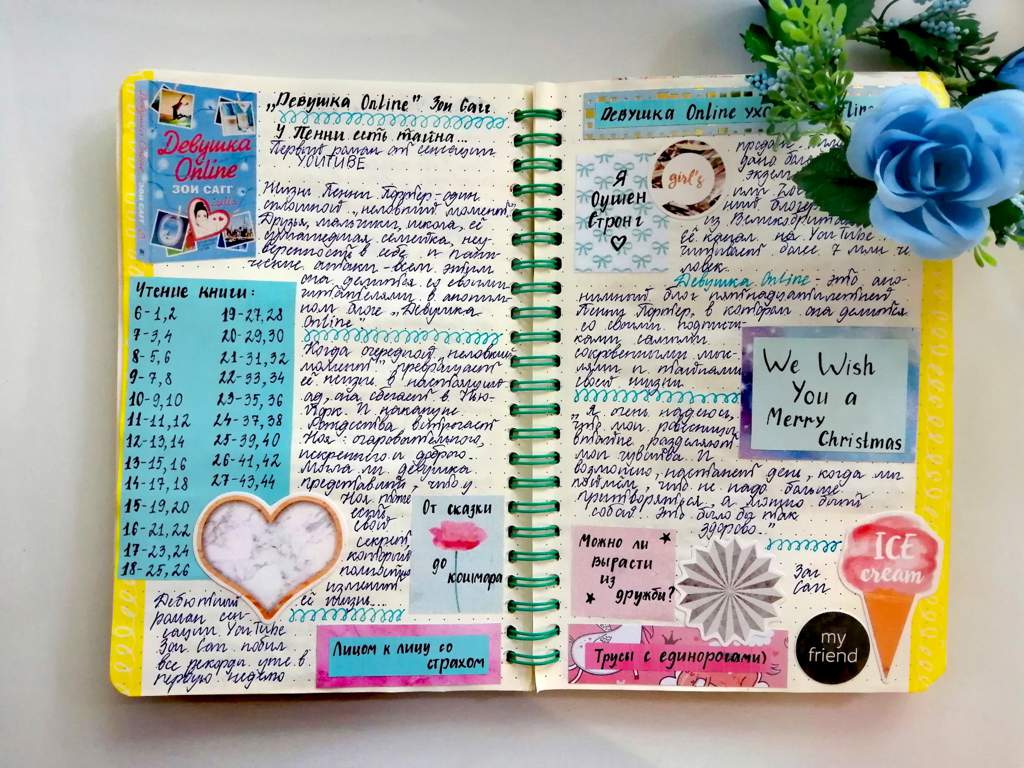 Девушка
Online
ЗОИ САГГ
„Девушка Online" Зои Сагг
У Пенни есть тайна...
Первый роман от сенсации
YOUTUBE
Жизнь Пенни Портер - один
сплошной „неловкий момент".
Друзья, мальчики, школа, её
сумасшедшая семейка, неу-
веренность в себе и пани-
ческие атаки - всем этим
она делится со своими
читателями в аноним-
ном блоге „Девушка
Online"
Когда очередной неловкий
момент превращает
её жизнь в настоящий
ад, она сбегает в Нью-
Йорк. И накануне
Рождества встречает
Ноя: очаровательного,
искреннего и доброго.
Могла ли девушка
представить, что у
Ноя тоже
есть
свой
секрет,
который
полностью
изменит
её жизнь.
Чтение книги:
6-1,2
7-3,4
8-5,6
9-7,8
10-9,10
11-11,12
12-13,14
13-15,16
14-17,18
15-19,20
16-21,22
17-23,24
18-25,26
19-27,28
20-29,30
21-31,32
22-33,34
23-35,36
24-37,38
25-39,40
26-41,42
27-43,44
От сказки
до
кошмара
Дебютный
роман сен-
сации YouTube
Зои Сагг побил
все рекорды уже в
первую неделю
Лицом к лицу со
страхом
Девушка Online ухо
Я
Оушен
Стронг
girl's
продаж
дано бо
экзем
или Zoe
ший блогер
из Великобритан
её канал на YouTube
читает более 7 млн че
ловек.
Девушка Online - это ано-
нимный блог пятнадцатилетней
Пенни Портер, в котором она делится
со своими подписчи-
ками самыми
сокровенными мыс-
лями и тайнами
своей жизни.
We Wish
You a
Merry
Christmas
„Я очень надеюсь,
что мои ровесницы
втайне разделяют
мои чувства. И
возможно, настанет день, когда мы
поймём, что не надо больше
притворяться, а можно быть
собой. Это было бы так
здорово..."
Зои
Сагг
Можно ли
вырасти
из
дружбы?
Трусы с единорогами)
my
friend
ICE
cream